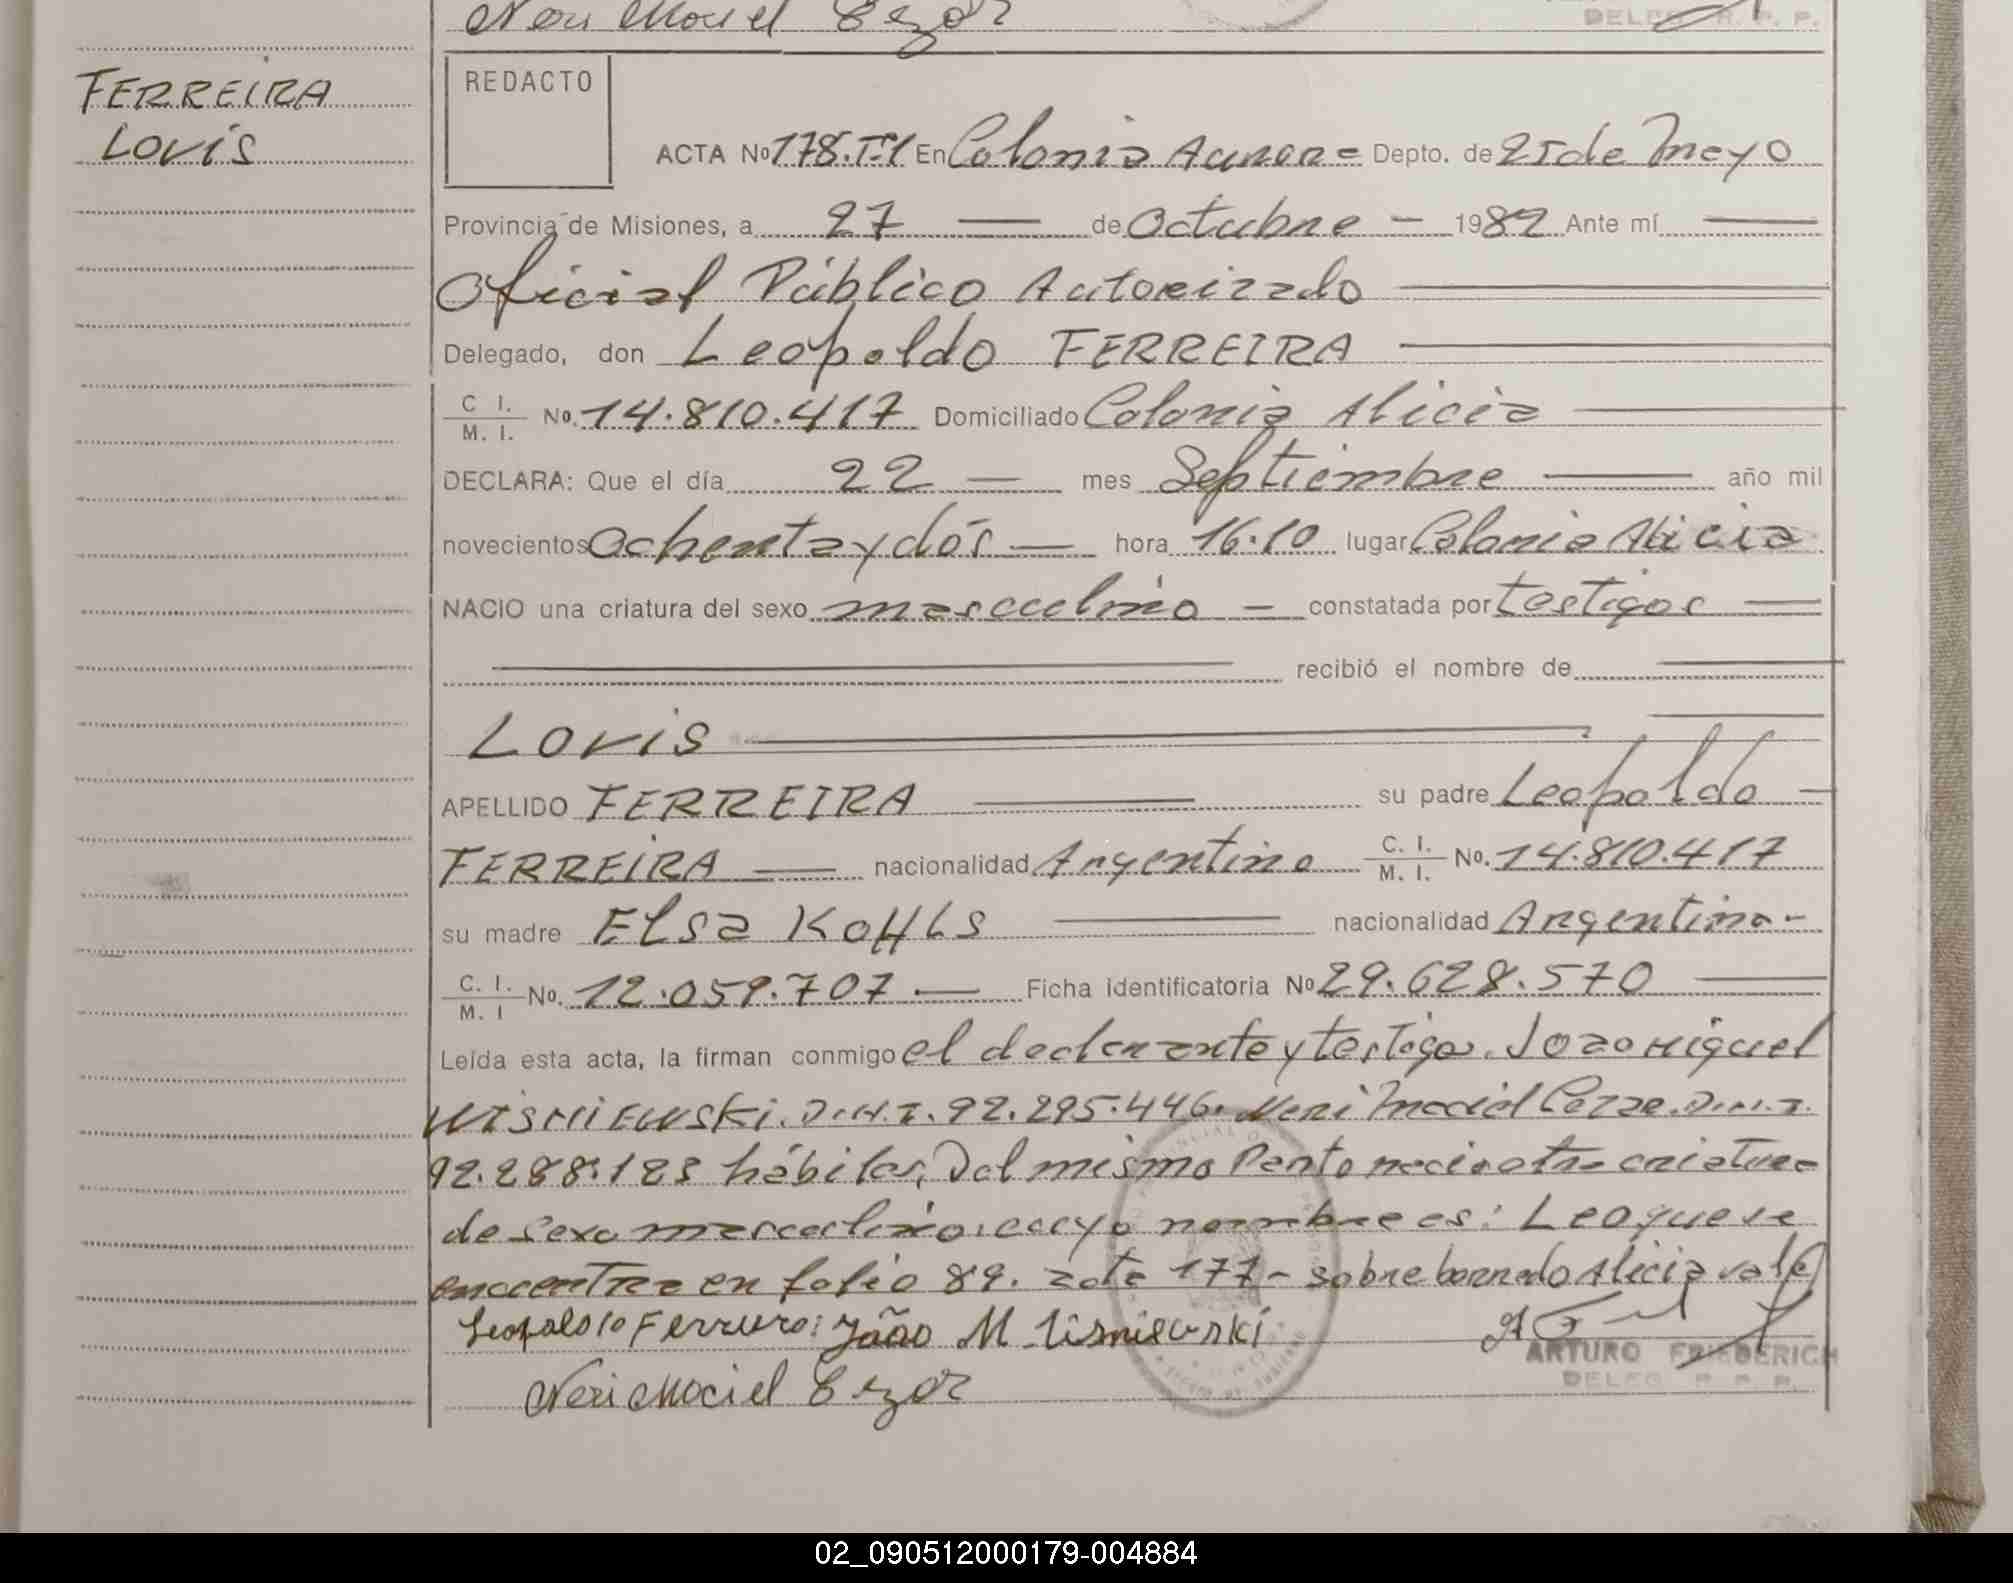 Neri Maciel Cezar
DELEG. R. P. P.
FERREIRA
LOVIS
REDACTO
ACTA No 178.T.I En Colonia Aurora = Depto. de 25 de Mayo
Provincia de Misiones, a 27 — de Octubre — 1982 Ante mí
Oficial Público Autorizado
Delegado, don Leopoldo FERREIRA
C. I. / M. I. No. 14.810.417 Domiciliado Colonia Alicia
DECLARA: Que el día 22 — mes Septiembre — año mil
novecientos Ochenta y dós — hora 16.10 lugar Colonia Alicia
NACIO una criatura del sexo masculino — constatada por testigos —
recibió el nombre de
LOVIS
APELLIDO FERREIRA su padre Leopoldo —
FERREIRA — nacionalidad Argentina C. I. / M. I. No. 14.810.417
su madre ELSA KOHLS nacionalidad Argentina -
C. I. / M. I No. 12.059.707 — Ficha identificatoria No 29.628.570 —
Leída esta acta, la firman conmigo el declarante y testigos. Joao Miguel
WISNIEWSKI. D.N.I. 92.295.446. Neri Maciel Cezar. D.N.I.
92.288.183 hábiles, Del mismo Parto nacio otra criatura
de sexo masculino, cuyo nombre es: Leo que se
encuentra en folio 89. acta 177 - sobre borrado Alicia vale
Leopoldo Ferreira João M. Wisnieurski
ARTURO FRIEDERICH
DELEG R. P. P.
Neri Maciel Cezar
02_090512000179-004884